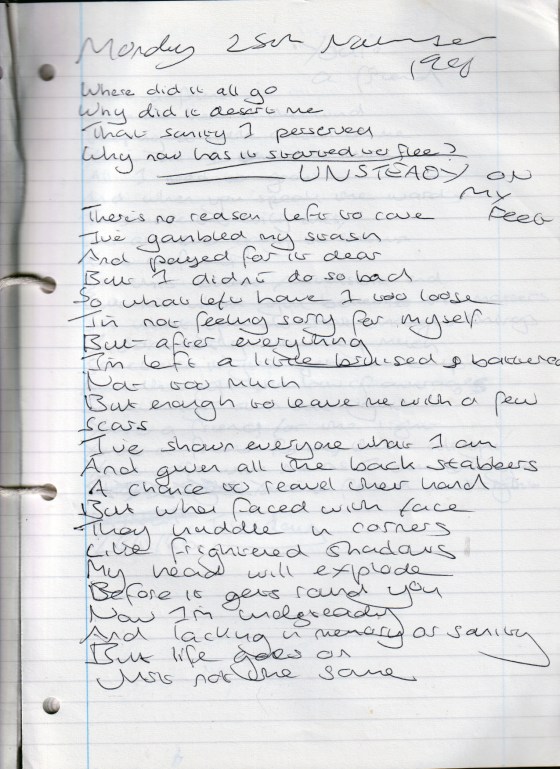 Monday 25th November
1991
Where did it all go
Why did it desert me
That sanity I perserved
Why now has it started to flee?
UNSTEADY ON
MY
FEET
There's no reason left to care
I've gambled my stash
And payed for it dear
But I didn't do so bad
So what left have I too loose
I'm not feeling sorry for myself
But after everything
I'm left a little bruised & battered
Not too much
But enough to leave me with a few
scars
I've shown everyone what I am
And given all the back stabbers
A chance to reavel their hand
But when faced with face
They huddle in corners
Like frightered shadows
My head will explode
Before it gets round you
Now I'm
And lacking in memory or sanity
But life goes on
Just not the same